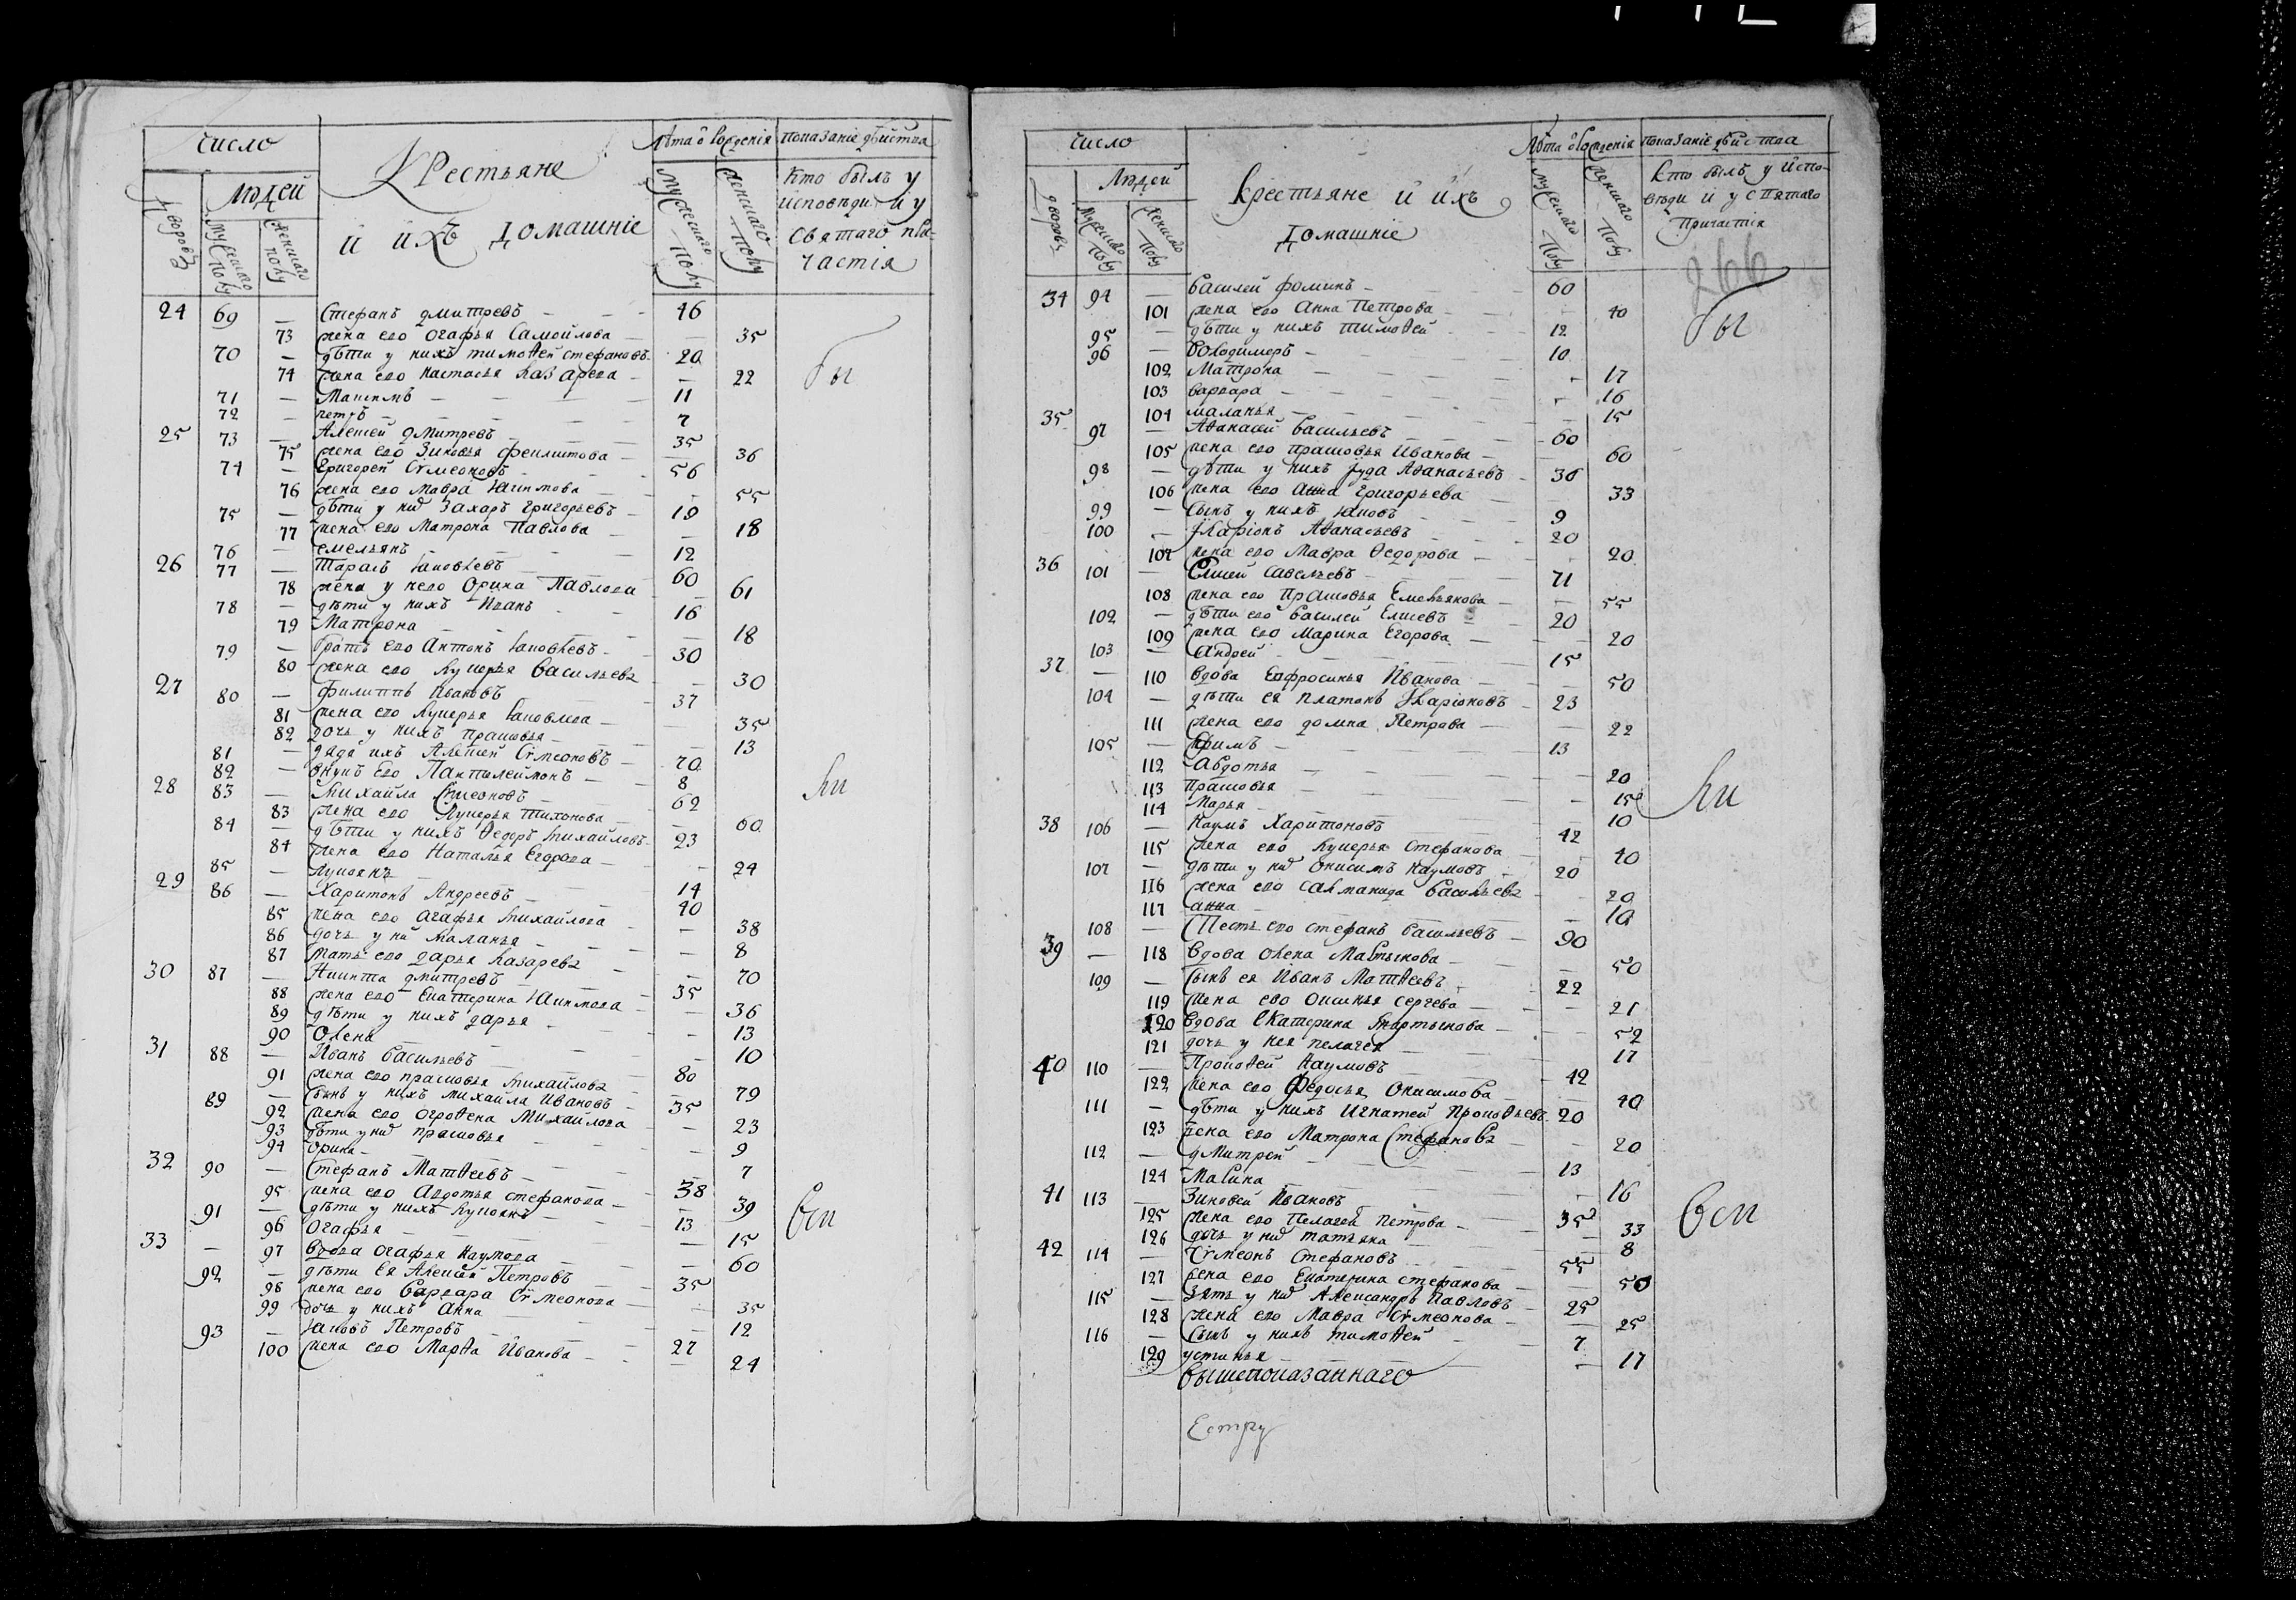 Число
Людей
Дворовъ
Мужескаго полу
Женскаго полу
Крестьяне
и ихъ домашніе
Лѣта ѿ рожденія
Мужескаго полу
Женскаго полу
показаніе дѣйства
кто былъ у
исповѣди и у
святаго при-
частія
24 69 — Стефанъ дмитревъ 46
73 жена его Огафья Самойлова 35
70 — дѣти у нихъ тимоѳей стефановъ 20
74 жена его настасья Лазарева 22
71 — Максимъ 11
72 — петръ 7
25 73 — Алексей дмитревъ 35
75 жена его Зиновья феилитова 36
74 — Григорей Сѵмеоновъ 56
76 жена его мавра Якимова 55
75 — дѣти у них Захаръ Григорьевъ 19
77 жена его Матрона Павлова 18
76 — емельянъ 12
26 77 — Тарасъ Яковлевъ 60
78 жена у него Орина Павлова 61
78 — дѣти у нихъ Иванъ 16
79 Матрона 18
79 — братъ его Антонъ Яковлевъ 30
80 жена его Лукерья Васильева 30
27 80 — филиппъ Ивановъ 37
81 жена его Лукерья Яковлева 35
82 дочь у нихъ прасковья 13
81 — дядя ихъ Алексей Сѵмеоновъ 70
82 — внукъ Его Пантылеймонъ 8
28 83 — Михайла Сѵмеоновъ 62
83 жена его Лукерья Тихонова 60
84 — дѣти у нихъ Ѳедоръ Михайловъ 23
84 жена его Наталья Егорова 24
85 — Лукоянъ 14
29 86 — Харитонъ Андреевъ 40
85 жена его Огафья Михайлова 38
86 дочь у ни маланья 8
87 мать его дарья Лазарева 70
30 87 — Никита дмитревъ 35
88 жена его Екатерина Якимова 36
89 дѣти у нихъ дарья 13
90 Олена 10
31 88 — Иванъ Васильевъ 80
91 жена его прасковья Михайлова 79
89 — сынъ у нихъ михайла Ивановъ 35
92 жена его огроѳена Михайлова 23
93 дѣти у них прасковья 9
94 Орина 7
32 90 — Стефанъ Матѳеевъ 38
95 жена его Авдотья стефанова 39
91 — дѣти у нихъ Лукоянъ 13
96 Огафья 15
33 — 97 вдова Огафья Наумова 60
92 — дѣти Ея Алексей Петровъ 35
98 жена его Варвара Сѵмеонова 35
99 дочь у нихъ Анна 12
93 — Яковъ Петровъ 27
100 жена его Марѳа Иванова 24
бы
ли
вси
Число
Людей
дворовъ
Мужескаго полу
Женскаго полу
Крестьяне и ихъ
домашніе
Лѣта ѿ рожденія
мужескаго полу
Женскаго полу
показаніе дѣйства
кто былъ у испо-
вѣди и у святаго
причастія
266
34 94 — Василей фоминъ 60
101 жена его Анна Петрова 40
95 — дѣти у нихъ тимоѳей 12
96 — Володимеръ 10
102 Матрона 17
103 варвара 16
104 маланья 15
35 97 — Аѳанасей Васильевъ 60
105 жена его прасковья Иванова 60
98 — дѣти у нихъ Iуда Аѳанасьевъ 36
106 жена его Анна Григорьева 33
99 — сынъ у нихъ Яковъ 9
100 — Iларіонъ Аѳанасьевъ 20
107 жена его Мавра Ѳедорова 20
36 101 — Елисей Савельевъ 71
108 жена его прасковья Емельянова 55
102 — дѣти его Василей Елисевъ 20
109 жена его Марина Егорова 20
103 — Андрей 15
37 — 110 вдова Епфросинья Иванова 50
104 — дѣти ея платонъ Iларіоновъ 23
111 жена его домна Петрова 22
105 — Ефимъ 13
112 Авдотья 20
113 прасковья 15
114 марья 10
38 106 — Наумъ Харитоновъ 42
115 жена его Лукерья Стефанова 40
107 — дѣти у них Онисимъ наумовъ 20
116 жена его салманида Васильева 20
117 анна 10
108 — Тесть его стефанъ Васильевъ 90
39 — 118 вдова Олена Мартынова 50
109 — сынъ ея Иванъ Матѳеевъ 22
119 жена его Оксинья сергева 21
120 вдова екатерина Мартынова 52
121 дочь у нея пелагея 17
40 110 — Прокоѳей Наумовъ 42
122 жена его Федосья Онисимова 40
111 — дѣти у нихъ Игнатей Прокоѳьевъ 20
123 жена его Матрона Стефанова 20
112 — дмитрей 13
124 Марина 16
41 113 — Зиновей Ивановъ 35
125 жена его Пелагея Петрова 33
126 дочь у них татьяна 8
42 114 — Сѵмеонъ Стефановъ 55
127 жена его Екатерина стефанова 50
115 — зять у них Александръ Павловъ 25
128 жена его Мавра Сѵмеонова 25
116 — сынъ у нихъ тимоѳей 7
129 устинья 17
вышепоказаннаго
бы
ли
вси